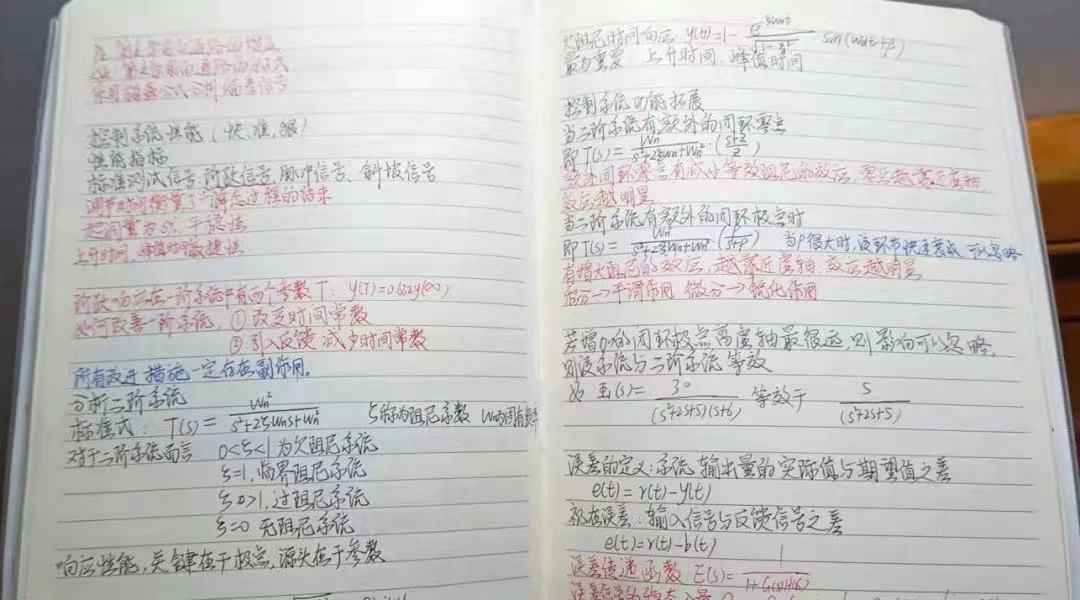 控制系统性能（快、准、狠）
性能指标
标准测试信号 阶跃信号、脉冲信号、斜坡信号
调节时间衡量了一响应过程的结束
超调量为σ%，平稳性
上升时间，峰值时间敏捷性
阶跃响应在一阶系统中有两个参数T：y(T)=0.632y(∞)
如何改善一阶系统，① 改变时间常数
② 引入反馈 减少时间常数
所有改进措施一定存在副作用。
分析二阶系统
标准式：T(s)= Wn²/(s²+2ζWns+Wn²) ζ称为阻尼系数 Wn为固有频率
对于二阶系统而言 0<ζ<1 为欠阻尼系统
ζ=1，临界阻尼系统
ζ>1，过阻尼系统
ζ=0 无阻尼系统
响应性能，关键在于极点，源头在于参数
欠阻尼时间响应 y(t)=1- e^(-ζWnt)/√(1-ζ²) sin(Wdt+β)
最为重要 上升时间、峰值时间
控制系统功能拓展
当二阶系统有额外的闭环零点
即T(s)= Wn²/(s²+2ζWns+Wn²)·((s+z)/z)
额外闭环零点有减小等效阻尼的效应，零点越靠近虚轴，
效应越明显
当二阶系统有额外的闭环极点时
即T(s)= Wn²/(s²+2ζWns+Wn²)·(p/(s+p)) 当p很大时，该环节快速衰减，可以忽略
有增大阻尼的效应，越靠近虚轴，效应越明显
积分→平滑作用 微分→锐化作用
若增加的闭环极点离虚轴最很远，则影响可以忽略，
则该系统与二阶系统等效
如 Φ(s)= 30/((s²+2s+5)(s+6)) 等效于 5/(s²+2s+5)
误差的定义：系统输出量的实际值与期望值之差
e(t)=r(t)-y(t)
视在误差：输入信号与反馈信号之差
e(t)=r(t)-b(t)
误差传递函数 E(s)= 1/(1+G(s)H(s))